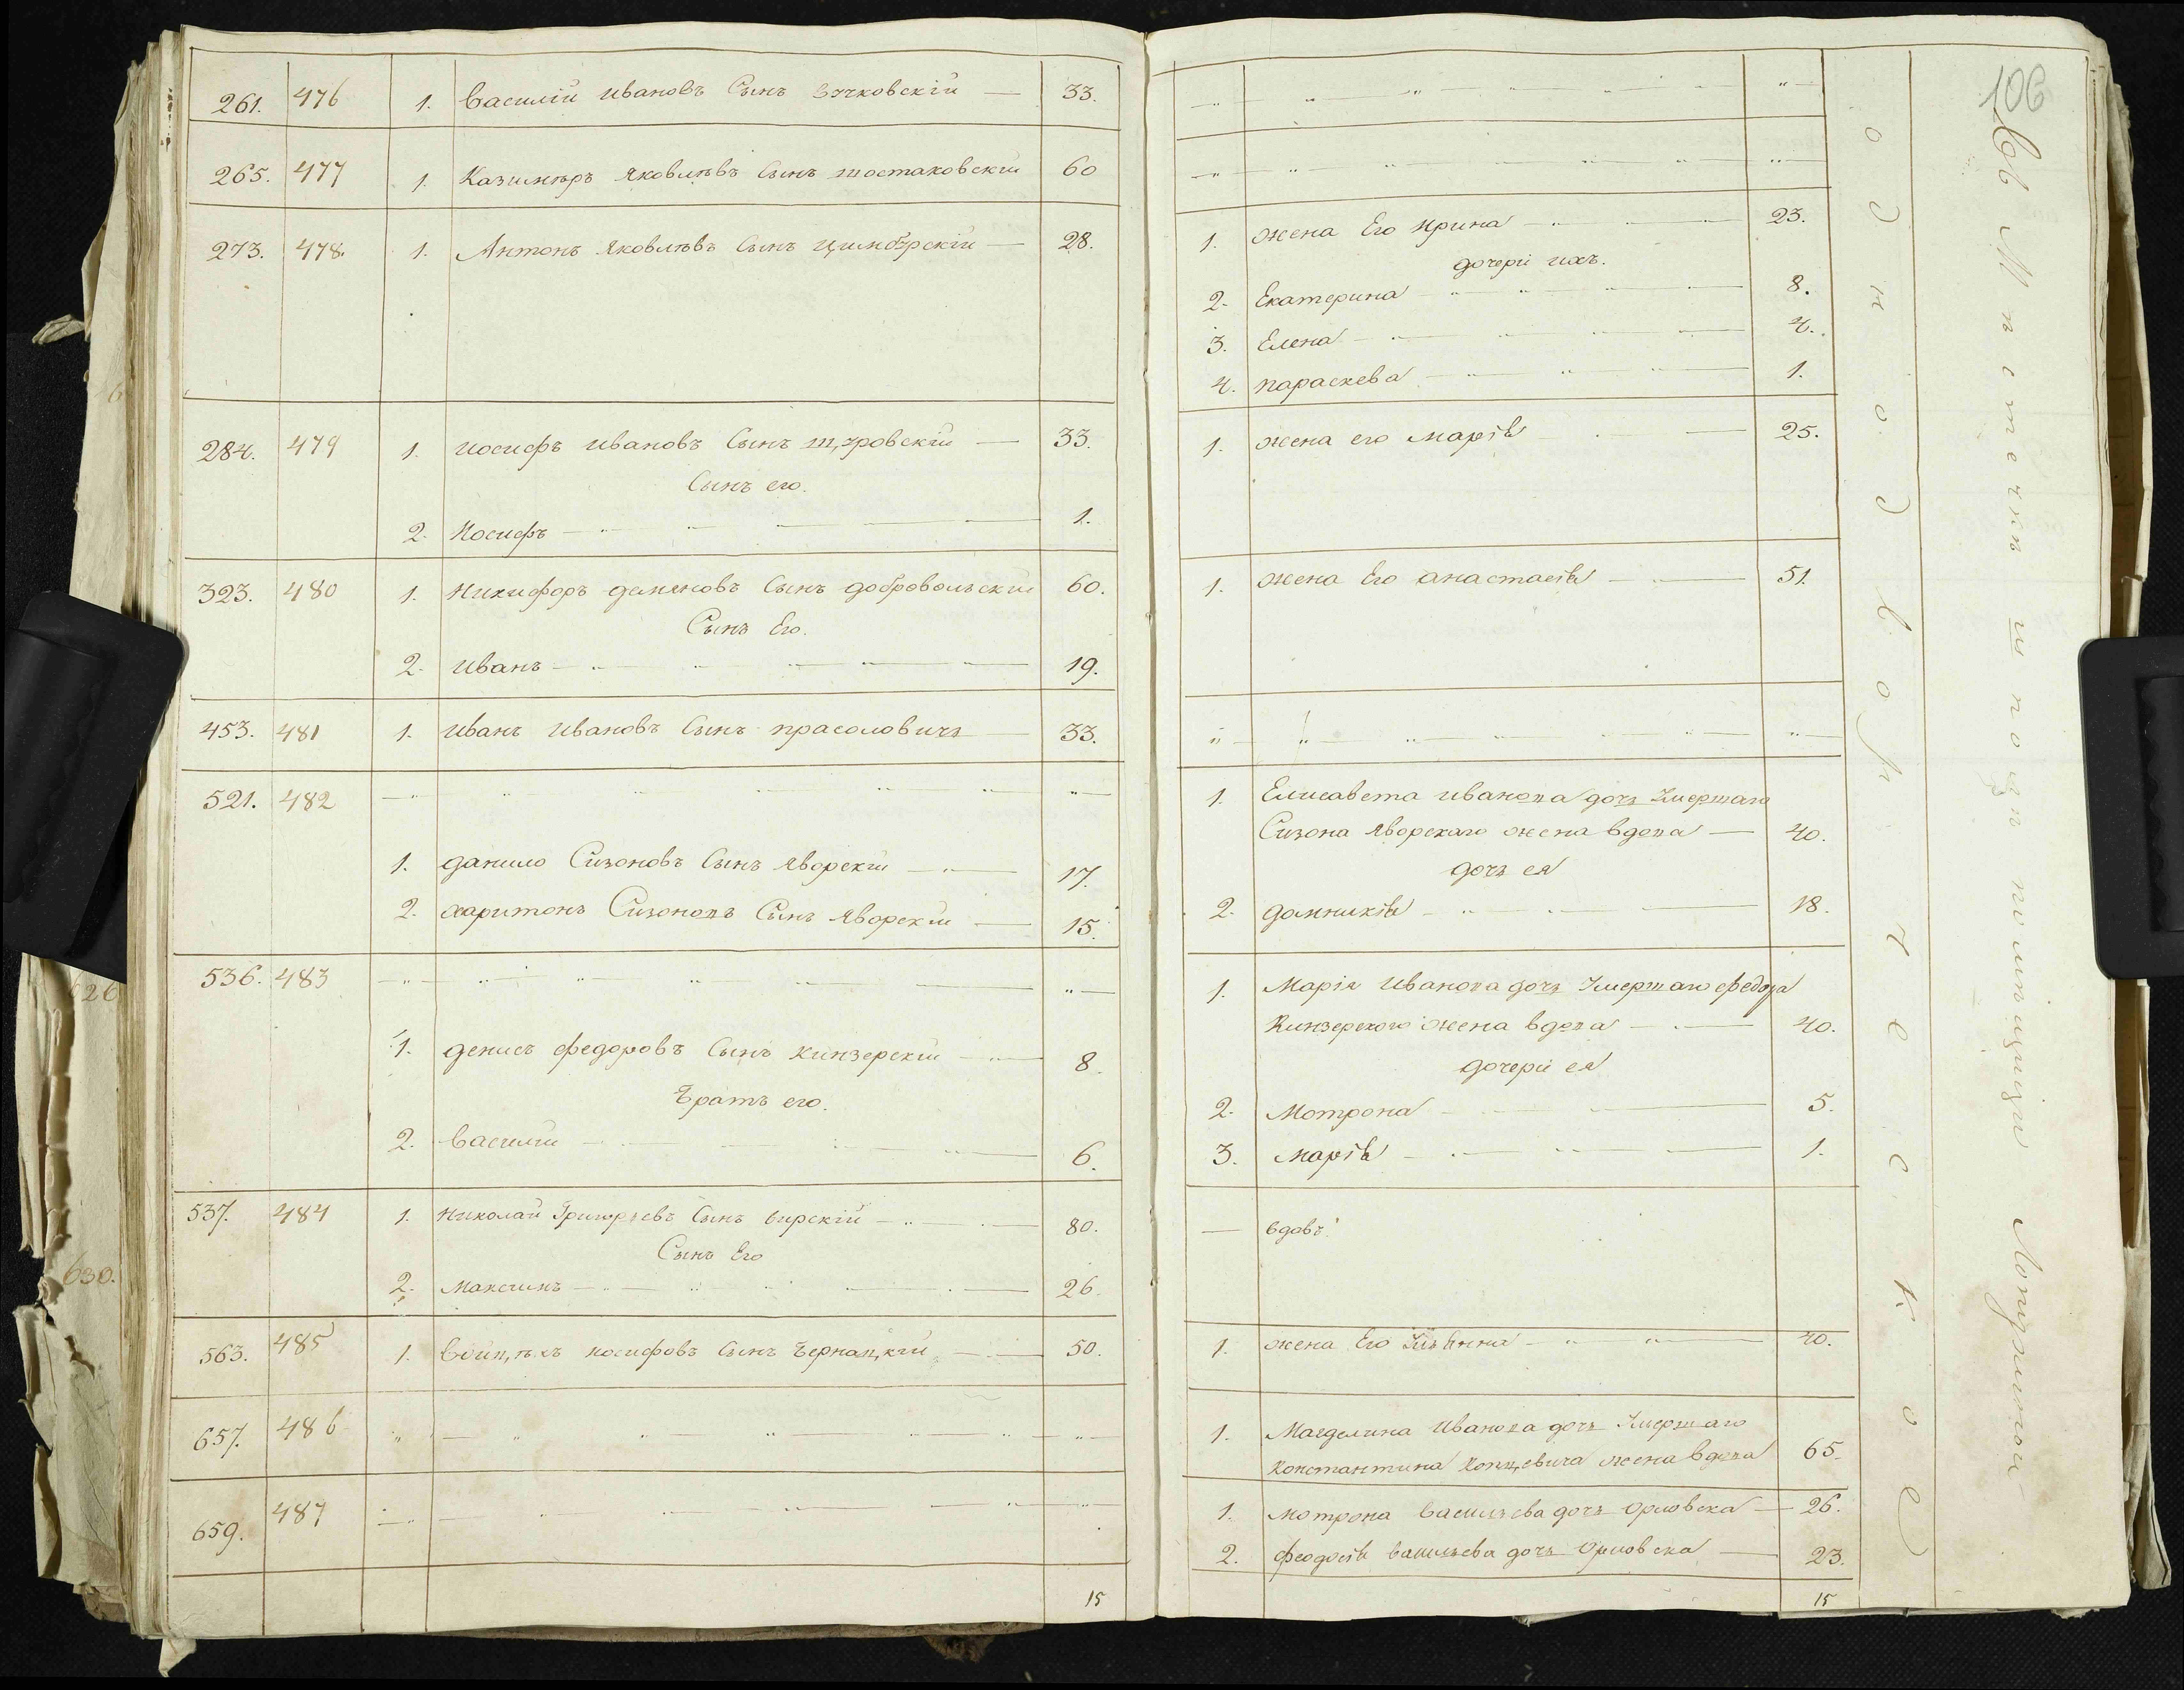 261. 476 1. Василій Ивановъ Сынъ Зочковскій — 33.
265. 477 1. Казимѣръ Яковлѣвъ Сынъ Шостаковскій 60
273. 478. 1. Антонъ Яковлѣвъ Сынъ Цимбэрскій — 28.
284. 479 1. Иосифъ Ивановъ Сынъ — 33.
Сынъ его.
2. Иосифъ — 1.
323. 480 1. Никифоръ Демяновъ Сынъ Добровольскій 60.
Сынъ Его.
2. Иванъ — 19.
453. 481 1. Иванъ Ивановъ Сынъ Прасоловичъ 33.
521. 482
1. Данило Сизоновъ Сынъ Яворскій — 17.
2. Харитонъ Сизоновъ Сынъ Яворскій — 15.
536. 483
1. Денисъ Федоровъ Сынъ Кинзерскій — 8.
Братъ его.
2. Василій — 6.
537. 484 1. Николай Григорьевъ Сынъ Бирскій — 80.
Сынъ Его
2. Максимъ — 26.
563. 485 1. Иосифовъ Сынъ — 50.
657. 486
659. 487
15
106
1. Жена Его Ирина — 23.
дочери ихъ.
2. Екатерина — 8.
3. Елена — 4.
4. Параскева — 1.
1. Жена его Марія — 25.
1. Жена Его Анастасія — 51.
1. Елисавета Иванова дочь Умершаго
Сизона Яворскаго жена вдова — 40.
дочь ея
2. Домникія — 18.
1. Марія Иванова дочь Умершаго Федора
Кинзерского жена вдова — 40.
дочери ея
2. Мотрона — 5.
3. Марія — 1.
— вдовъ.
1. Жена Его Ульянна — 40.
1. Магделина Иванова дочь Умершаго
Константина Копцевича жена вдова 65.
1. Мотрона Васильева дочь Орловска — 26.
2. Феодосія Васильева дочь Орловска — 23.
15
Однодворческое
Въ Мпстечкп